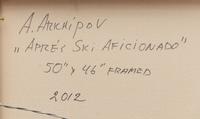 A. ARKHIPOV
„APRÉS SKI AFICIONADO”
50" x 46" FRAMED
2012